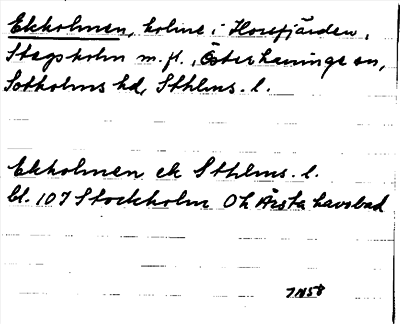 Ekholmen, holme i Horsfjärden,
Stegsholm m.fl., Österhaninge sn,
Sotholms hd, Sthlms. l.
Ekholmen ek Sthlms. l.
bl. 107 Stockholm Oh Årsta havsbad
7N58